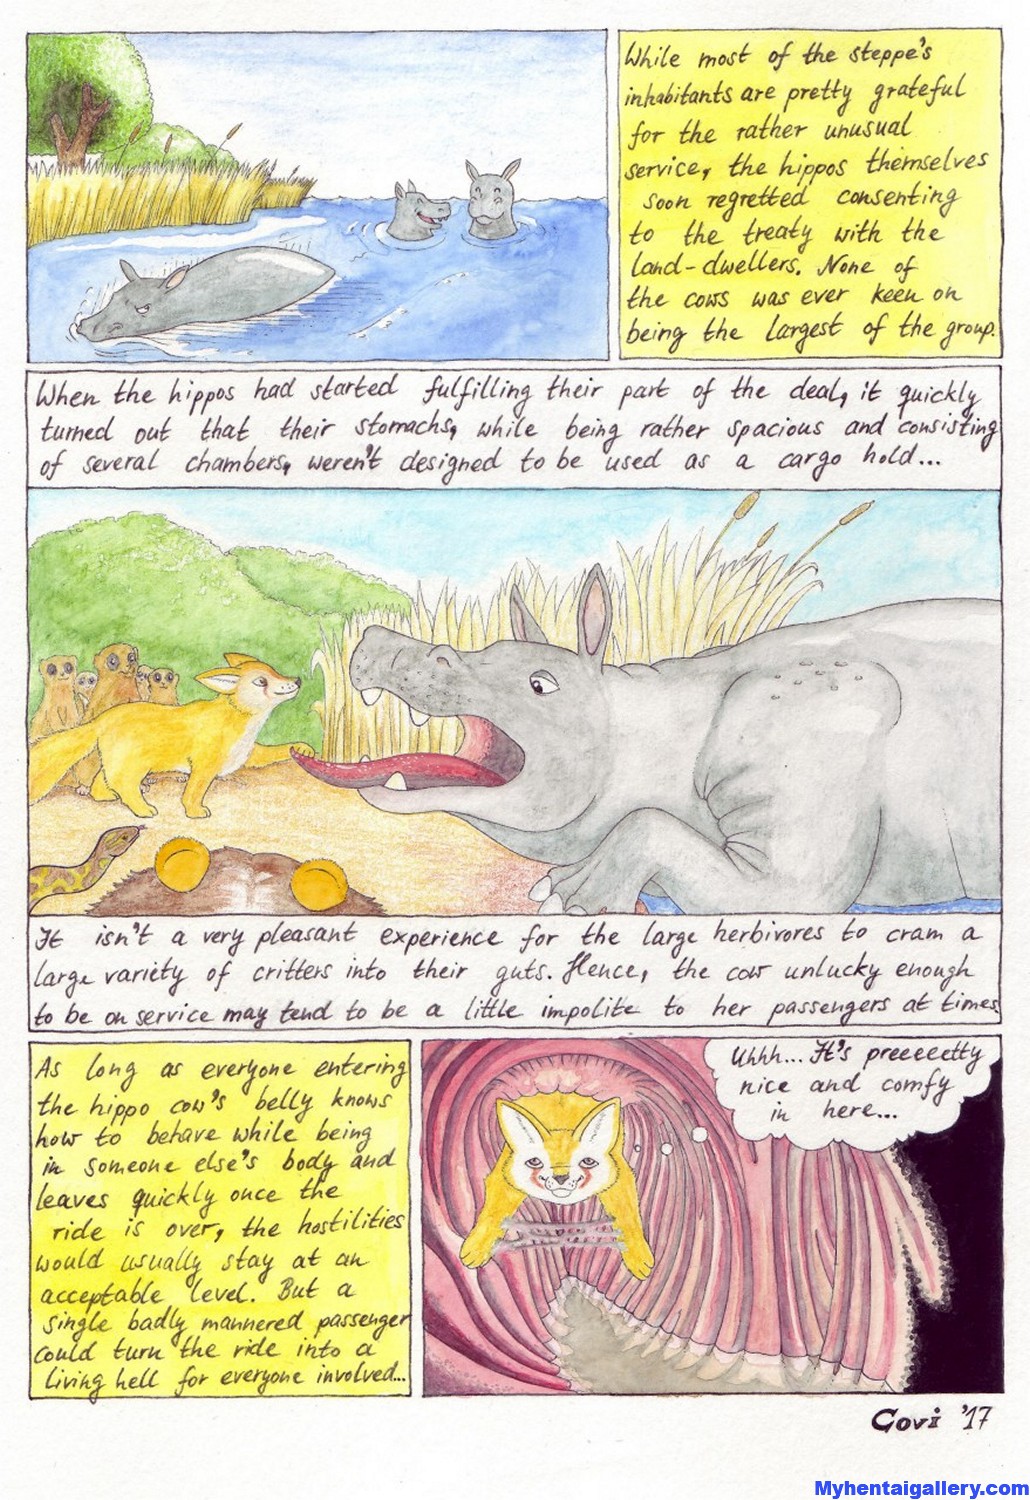 While most of the steppe's
inhabitants are pretty grateful
for the rather unusual
service, the hippos themselves
soon regretted consenting
to the treaty with the
land-dwellers. None of
the cows was ever keen on
being the largest of the group.
When the hippos had started fulfilling their part of the deal, it quickly
turned out that their stomachs, while being rather spacious and consisting
of several chambers, weren't designed to be used as a cargo hold...
It isn't a very pleasant experience for the large herbivores to cram a
large variety of critters into their guts. Hence, the cow unlucky enough
to be on service may tend to be a little impolite to her passengers at times.
As long as everyone entering
the hippo cow's belly knows
how to behave while being
in someone else's body and
leaves quickly once the
ride is over, the hostilities
would usually stay at an
acceptable level. But a
single badly mannered passenger
could turn the ride into a
living hell for everyone involved...
Uhhh... It's preeeeetty
nice and comfy
in here...
Govi '17
Myhentaigallery.com